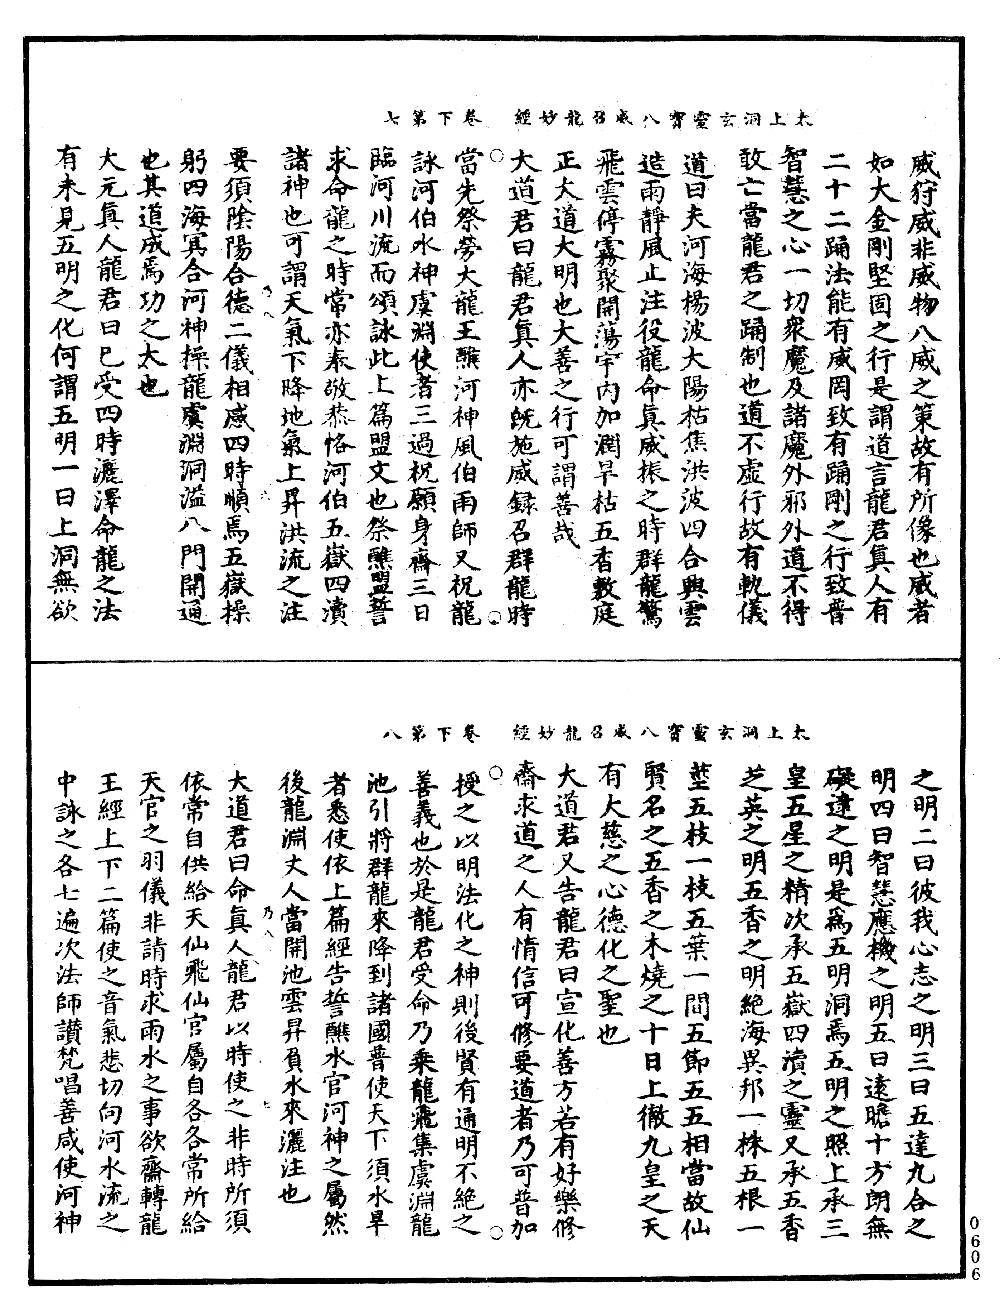 太上洞玄靈寶八威召龍妙經　卷下第七
威狩威非威物八威之策故有所像也威者
如大金剛堅固之行是謂道言龍君真人有
二十二踊法能有威罔致有踊剛之行致普
智慧之心一切眾魔及諸魔外邪外道不得
敢亡當龍君之踊制也道不虛行故有軌儀
道曰夫河海楊波大陽枯焦洪波四合興雲
造雨靜風止注役龍命真威振之時群龍驚
飛雲停霧聚開蕩宇內加潤旱枯五香敷庭
正大道大明也大善之行可謂善哉
大道君曰龍君真人亦既施威録召群龍時
當先祭勞大龍王醮河神風伯雨師又祝龍
詠河伯水神虞淵使者三過祝願身齋三日
臨河川流而頌詠此上篇盟文也祭醮盟誓
求命龍之時常亦奉敬恭恪河伯五嶽四瀆
諸神也可謂天氣下降地氣上昇洪流之注
要須陰陽合德二儀相感四時順焉五嶽操
躬四海冥合河神操龍虞淵洞溢八門開通
也其道成焉功之太也
大元真人龍君曰已受四時灑澤命龍之法
有未見五明之化何謂五明一曰上洞無欲
太上洞玄靈寶八威召龍妙經　卷下第八
之明二曰彼我心志之明三曰五達九合之
明四曰智慧應機之明五曰遠瞻十方朗無
礙達之明是為五明洞焉五明之照上承三
皇五星之精次承五嶽四瀆之靈又承五香
芝英之明五香之明絕海異邦一株五根一
莖五枝一枝五葉一間五節五五相當故仙
賢名之五香之木燒之十日上徹九皇之天
有大慈之心德化之聖也
大道君又告龍君曰宣化善方若有好樂修
齋求道之人有情信可修要道者乃可普加
授之以明法化之神則後賢有通明不絕之
善義也於是龍君受命乃乘龍飛集虞淵龍
池引將群龍來降到諸國普使天下須水旱
者悉使依上篇經告誓醮水官河神之屬然
後龍淵丈人當開池雲昇負水來灑注也
大道君曰命真人龍君以時使之非時所須
依常自供給天仙飛仙官屬自各各常所給
天官之羽儀非請時求雨水之事欲齋轉龍
王經上下二篇使之音氣悲切向河水流之
中詠之各七遍次法師讚梵唱善咸使河神
0606